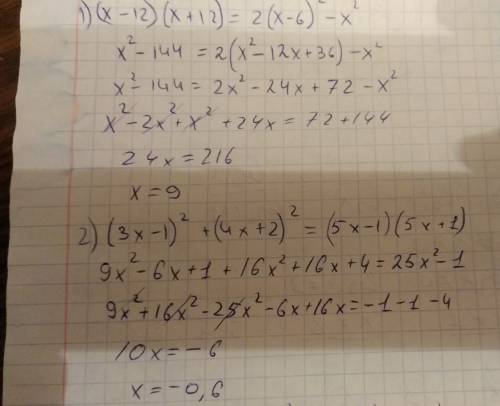 1) (x-12)(x+12) = 2(x-6)² - x²
x² - 144 = 2(x² - 12x + 36) - x²
x² - 144 = 2x² - 24x + 72 - x²
x² - 2x² + x² + 24x = 72 + 144
24x = 216
x = 9
2) (3x-1)² + (4x+2)² = (5x-1)(5x+1)
9x² - 6x + 1 + 16x² + 16x + 4 = 25x² - 1
9x² + 16x² - 25x² - 6x + 16x = -1 - 1 - 4
10x = -6
x = -0,6